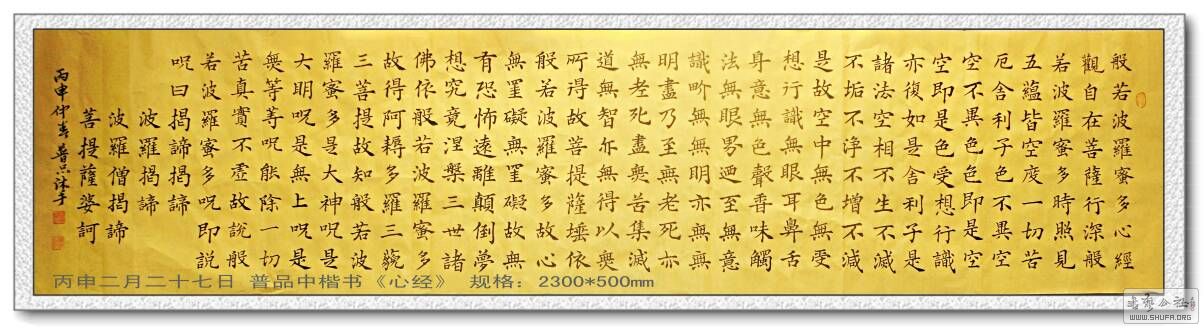 般若波羅蜜多心經
觀自在菩薩行深般
若波羅蜜多時照見
五蕴皆空度一切苦
厄舍利子色不異空
空不異色色即是空
空即是色受想行識
亦復如是舍利子是
諸法空相不生不滅
不垢不淨不增不減
是故空中無色無受
想行識無眼耳鼻舌
身意無色聲香味觸
法無眼界迺至無意
識界無無明亦無無
明盡乃至無老死亦
無老死盡無苦集滅
道無智亦無得以無
所得故菩提薩埵依
般若波羅蜜多故心
無罣礙無罣礙故無
有恐怖遠離顛倒夢
想究竟涅槃三世諸
佛依般若波羅蜜多
故得阿耨多羅三藐
三菩提故知般若波
羅蜜多是大神呪是
大明呪是無上呪是
無等等呪能除一切
苦真實不虛故說般
若波羅蜜多呪即説
呪曰揭諦揭諦
波羅揭諦
波羅僧揭諦
菩提薩婆訶
丙申仲春 普品沐手
丙申二月二十七日 普品中楷书《心经》 规格：2300*500mm
WWW.SHUFA.ORG